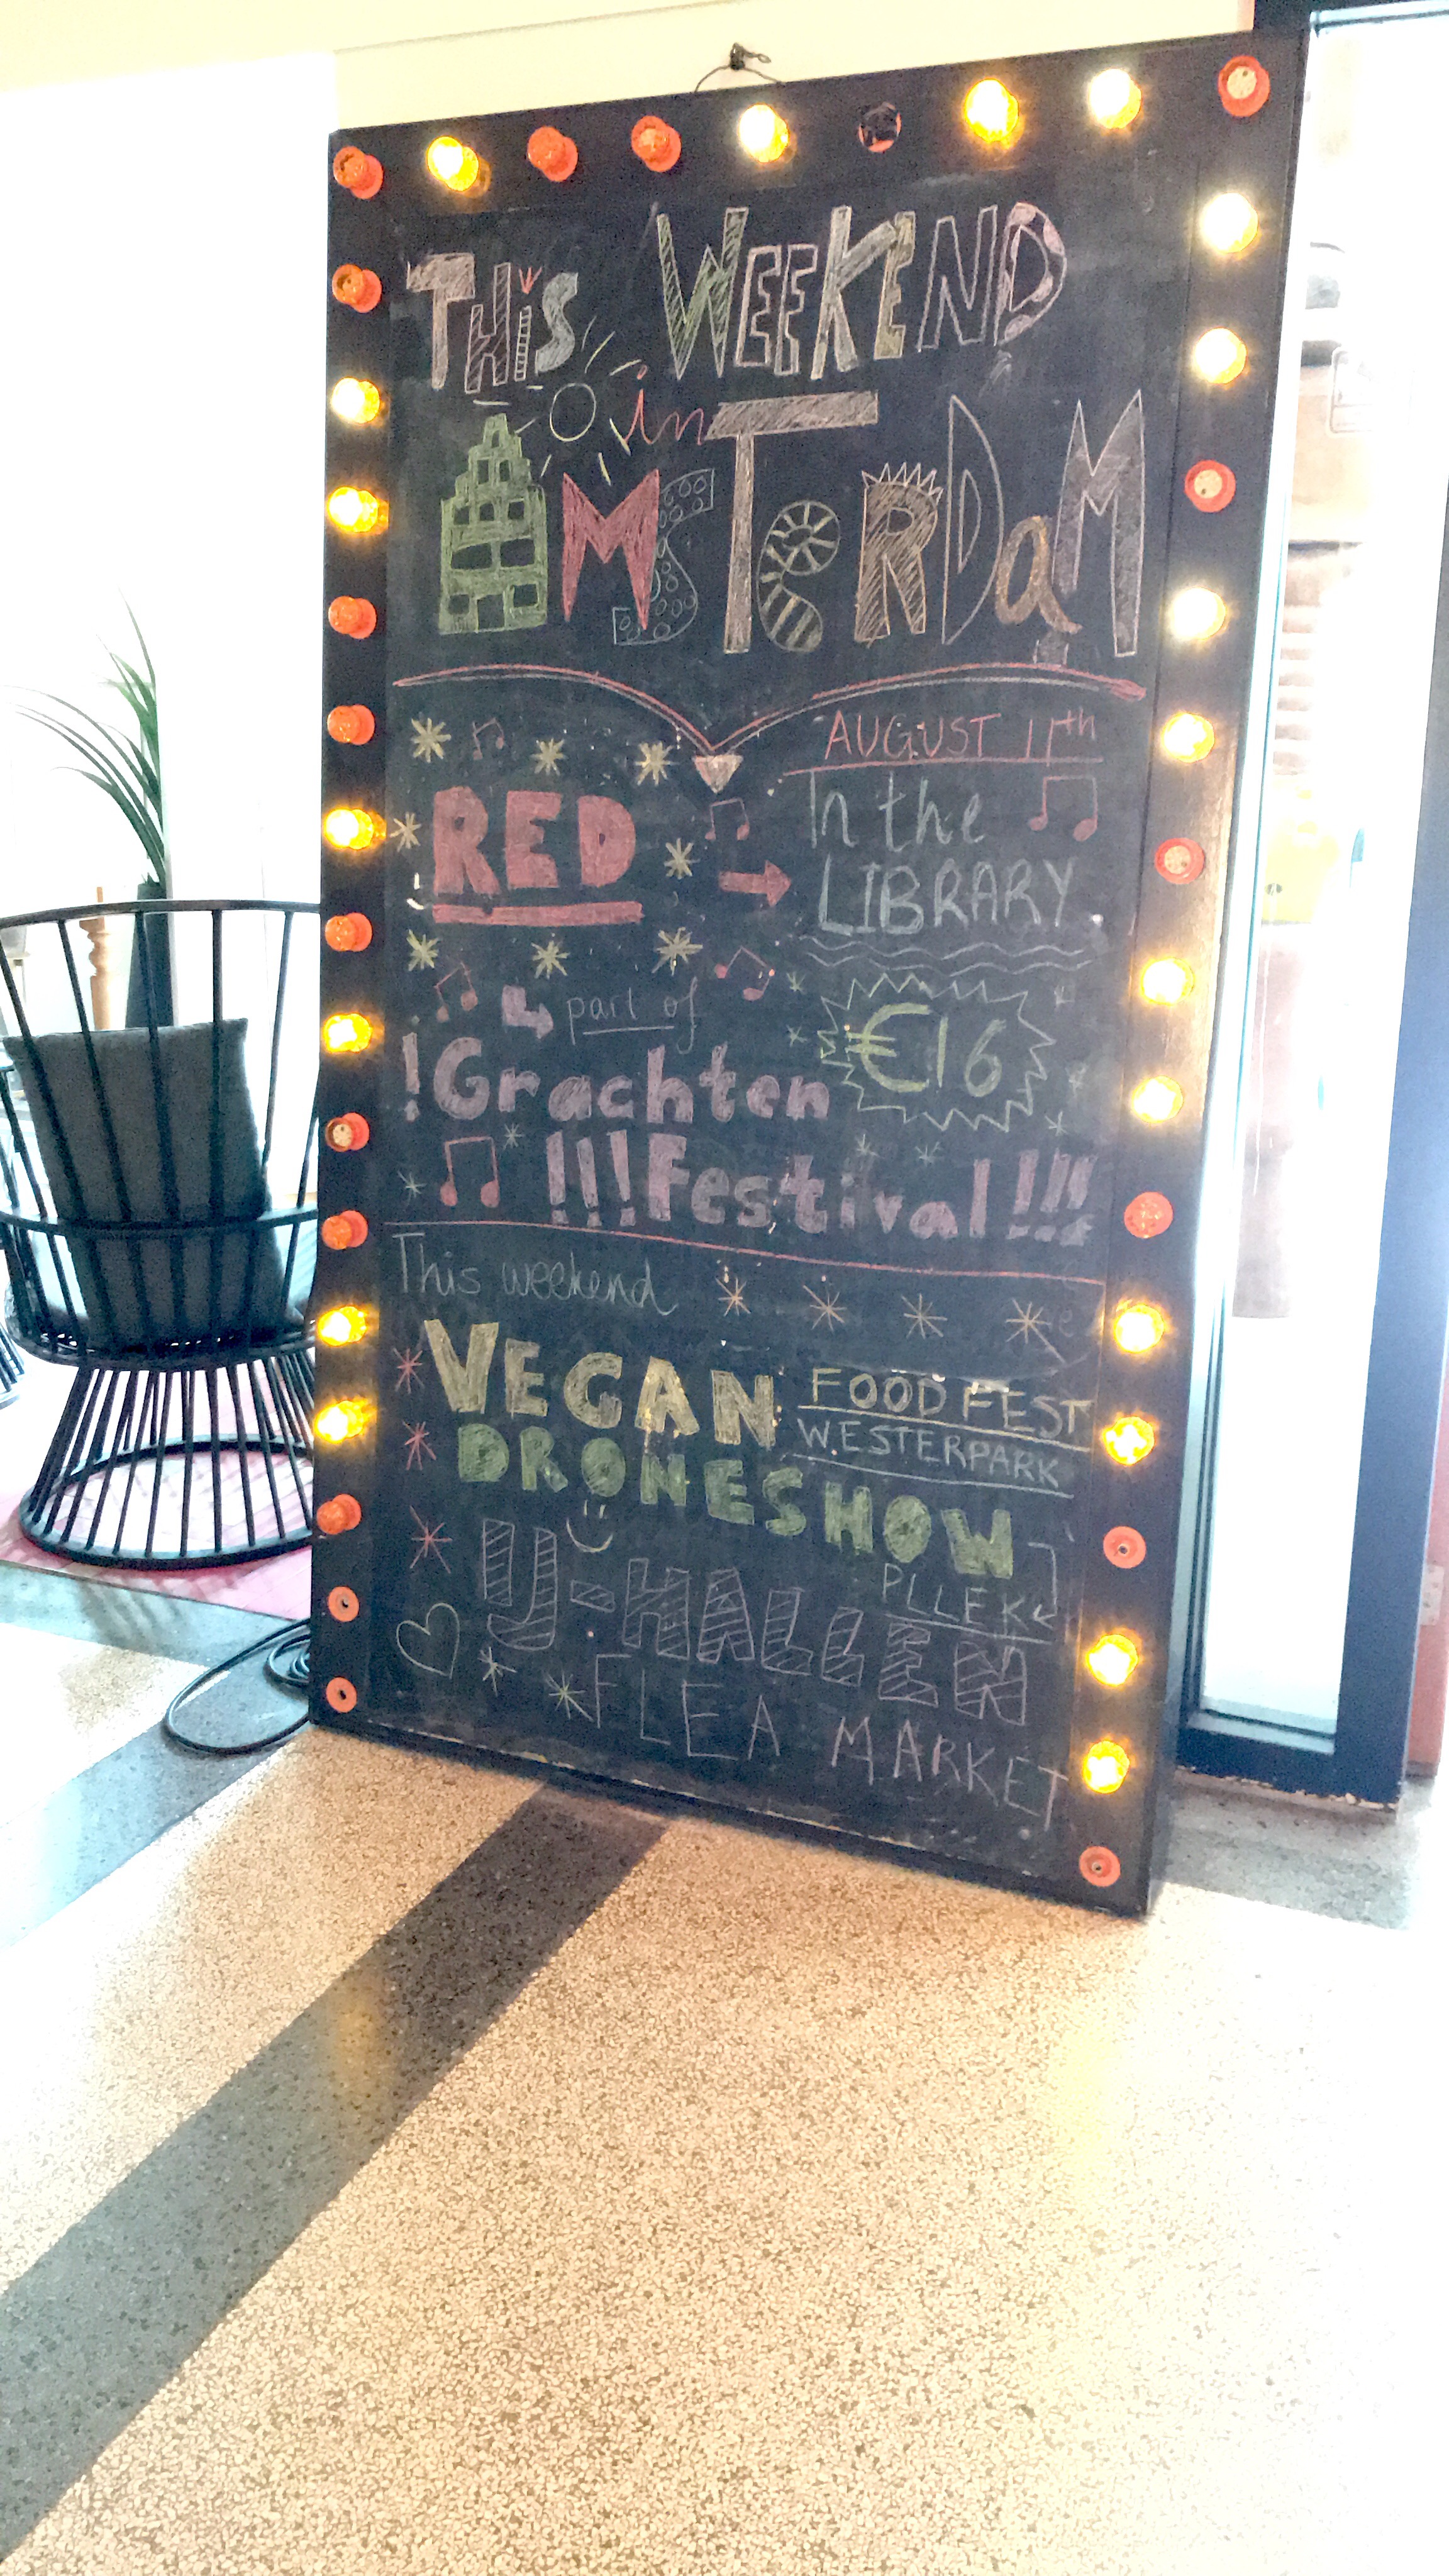 THiS WEEKEND
in
AMSTeRDaM
RED
AUGUST 11th
In the
LIBRARY
€16
part of
!Grachten
!!!Festival!!!
This weekend
VEGAN FOOD FEST
WESTERPARK
DRONESHOW
PLLEK
IJ-HALLEN
FLEA MARKET